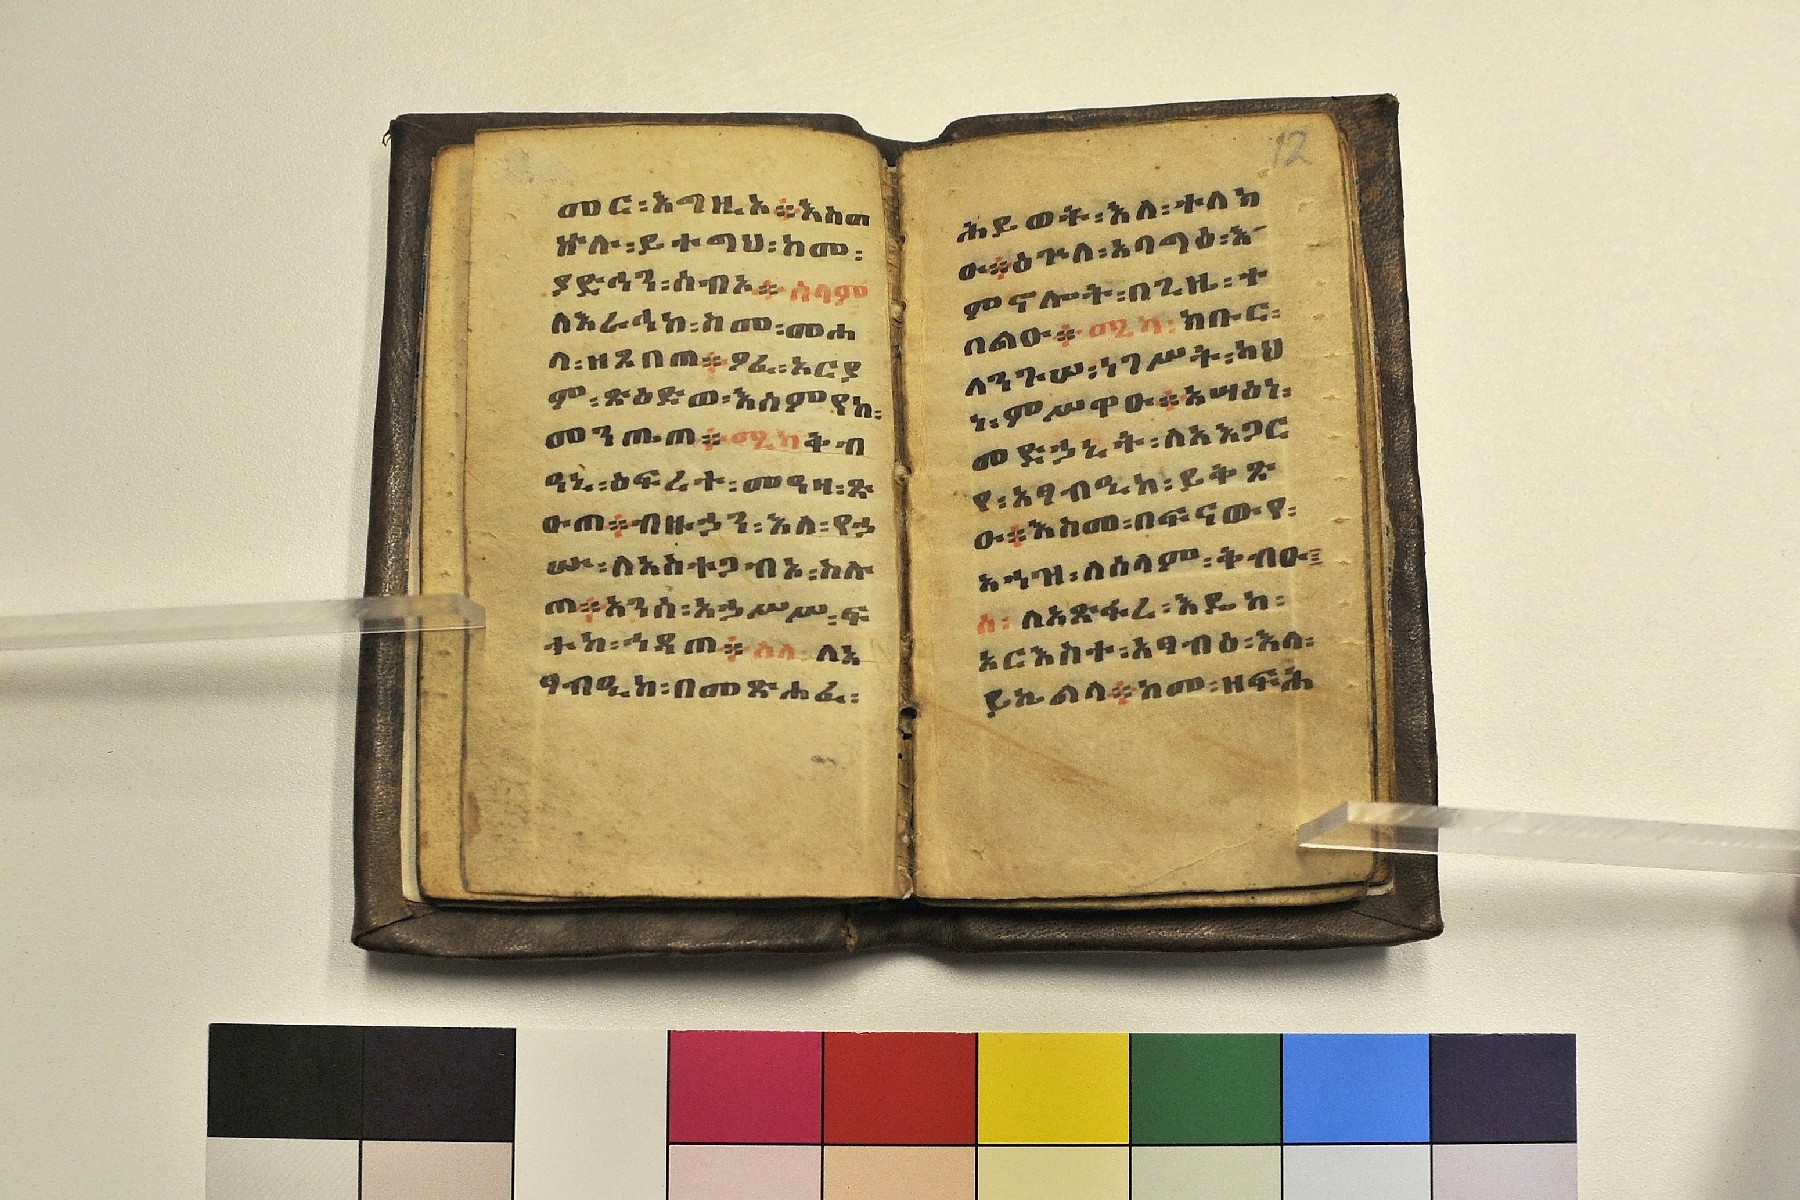 መር፡አግዚአ፨እስመ
ዅሉ፡ይተግህ፡ከመ፡
ያድኅን፡ሰብአ፨ሰላም
ለእራኂከ፡ከመ፡መሐ
ላ፡ዘጸበጠ፨ዖፈ፡አርያ
ም፡ጽዕድወ፡እስምየከ፡
መንጡጠ፨ሚካ ቅብ
ዓኒ፡ዕፍረተ፡መዓዛ፡ጽ
ውጠ፨ብዙኃን፡እለ፡የኃ
ሡ፡ለአስተጋብኦ፡ከሉ
ጠ፨አንሰ፡አኃሥሥ፡ፍ
ተከ፡ኅዳጠ፨ሰላ፡ለአ
ፃብዒከ፡በመጽሐፈ፡
12
ሕይወት፡እለ፡ተለከ
ው፨ዕጕለ፡አባግዕ፡እ
ምኖሎት፡በጊዜ፡ተ
በልዑ፨ሚካ፡ክቡር፡
ለንጉሠ፡ነገሥት፡ካህ
ነ፡ምሥዋዑ፨አሣዕነ፡
መድኃኒት፡ለአእጋር
የ፡አፃብዒከ፡ይቅጽ
ዉ፨እስመ፡በፍናውየ፡
አኀዝ፡ለሰላም፡ትብዑ፡
ሰ፡ለአጽፋረ፡እዴከ፡
አርእስተ፡አፃብዕ፡እለ፡
ይኬልላ፨ከመ፡ዘፍሕ